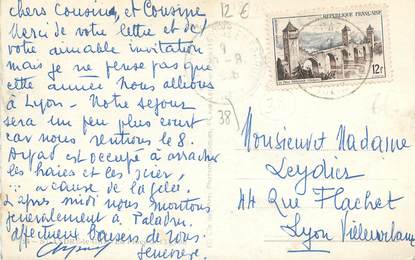 chers Cousins, et Cousine
Merci de votre lettre et de
votre aimable invitation
mais je ne pense pas que
cette année nous allions
à Lyon - Notre séjour
sera un peu plus court
car nous rentrons le 8.
est occupé à arracher
les haies et les scier,
... à cause de la
L'après midi nous montons
généralement à Paladru.
affectueux baisers de tous.
Geneviève
12 €
38
REPUBLIQUE FRANÇAISE
12F
Monsieur et Madame
Leydier
44 Rue Flachet
Lyon Villeurbanne